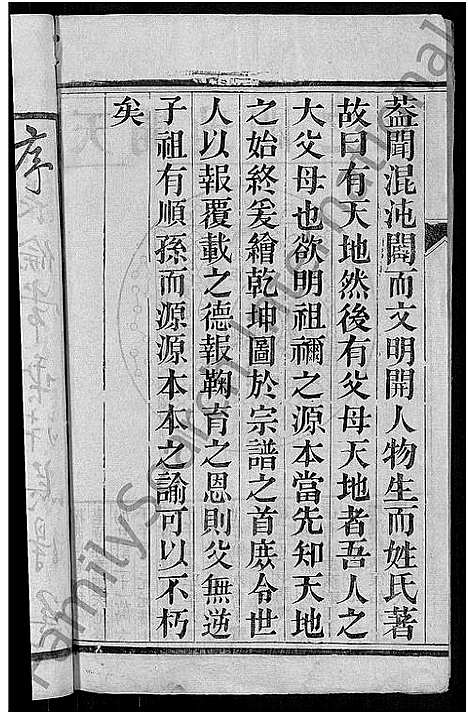 葢聞混沌闢而文明開人物生而姓氏著
故曰有天地然後有父母天地者吾人之
大父母也欲明祖禰之源本當先知天地
之始終爰繪乾坤圖於宗譜之首庶令世
人以報覆載之德報鞠育之恩則父無逆
子祖有順孫而源源本本之諭可以不朽
矣
序
FamilySearch International